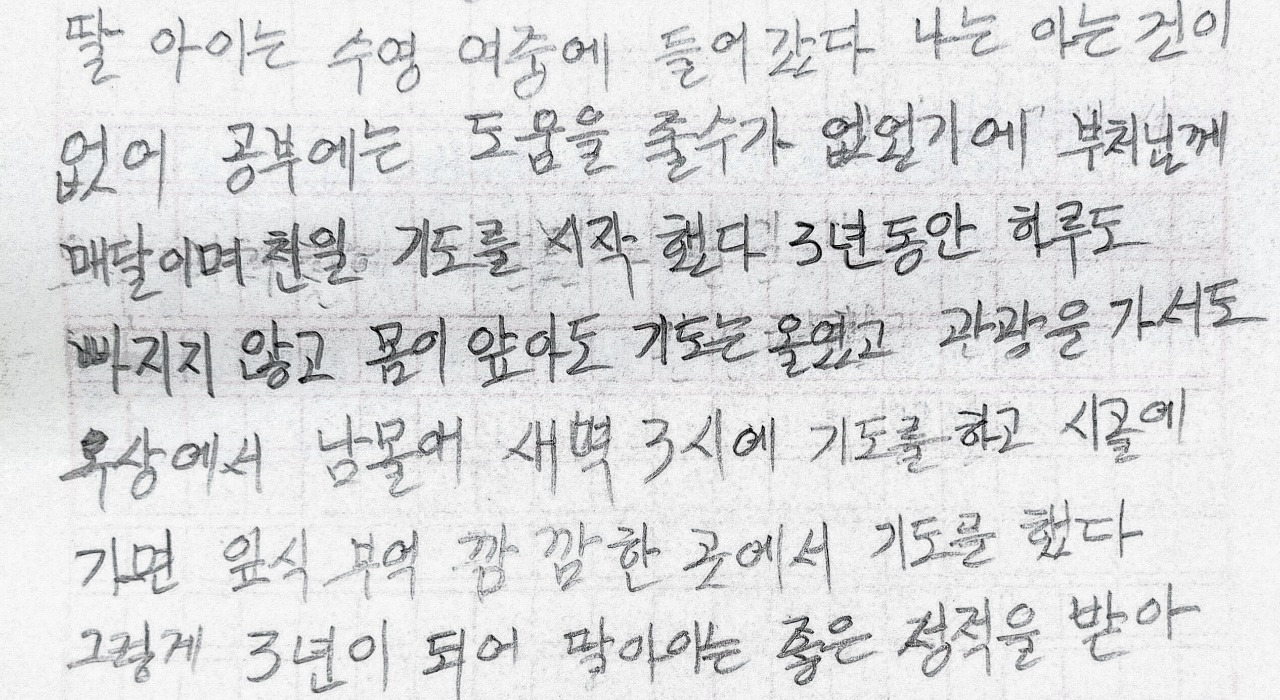 딸 아이는 수영 여중에 들어갔다 나는 아는 건이
없어 공부에는 도움을 줄수가 없었기에 부처님께
매달이며 천일 기도를 시작 했다 3년동안 하루도
빠지지 않고 몸이 앞아도 기도는 올렸고 관광을 가서도
옥상에서 남몰에 새벽 3시에 기도를 하고 시골에
가면 음식 부엌 깜깜한 곳에서 기도를 했다
그렇게 3년이 되어 딸아이는 좋은 성적을 받아